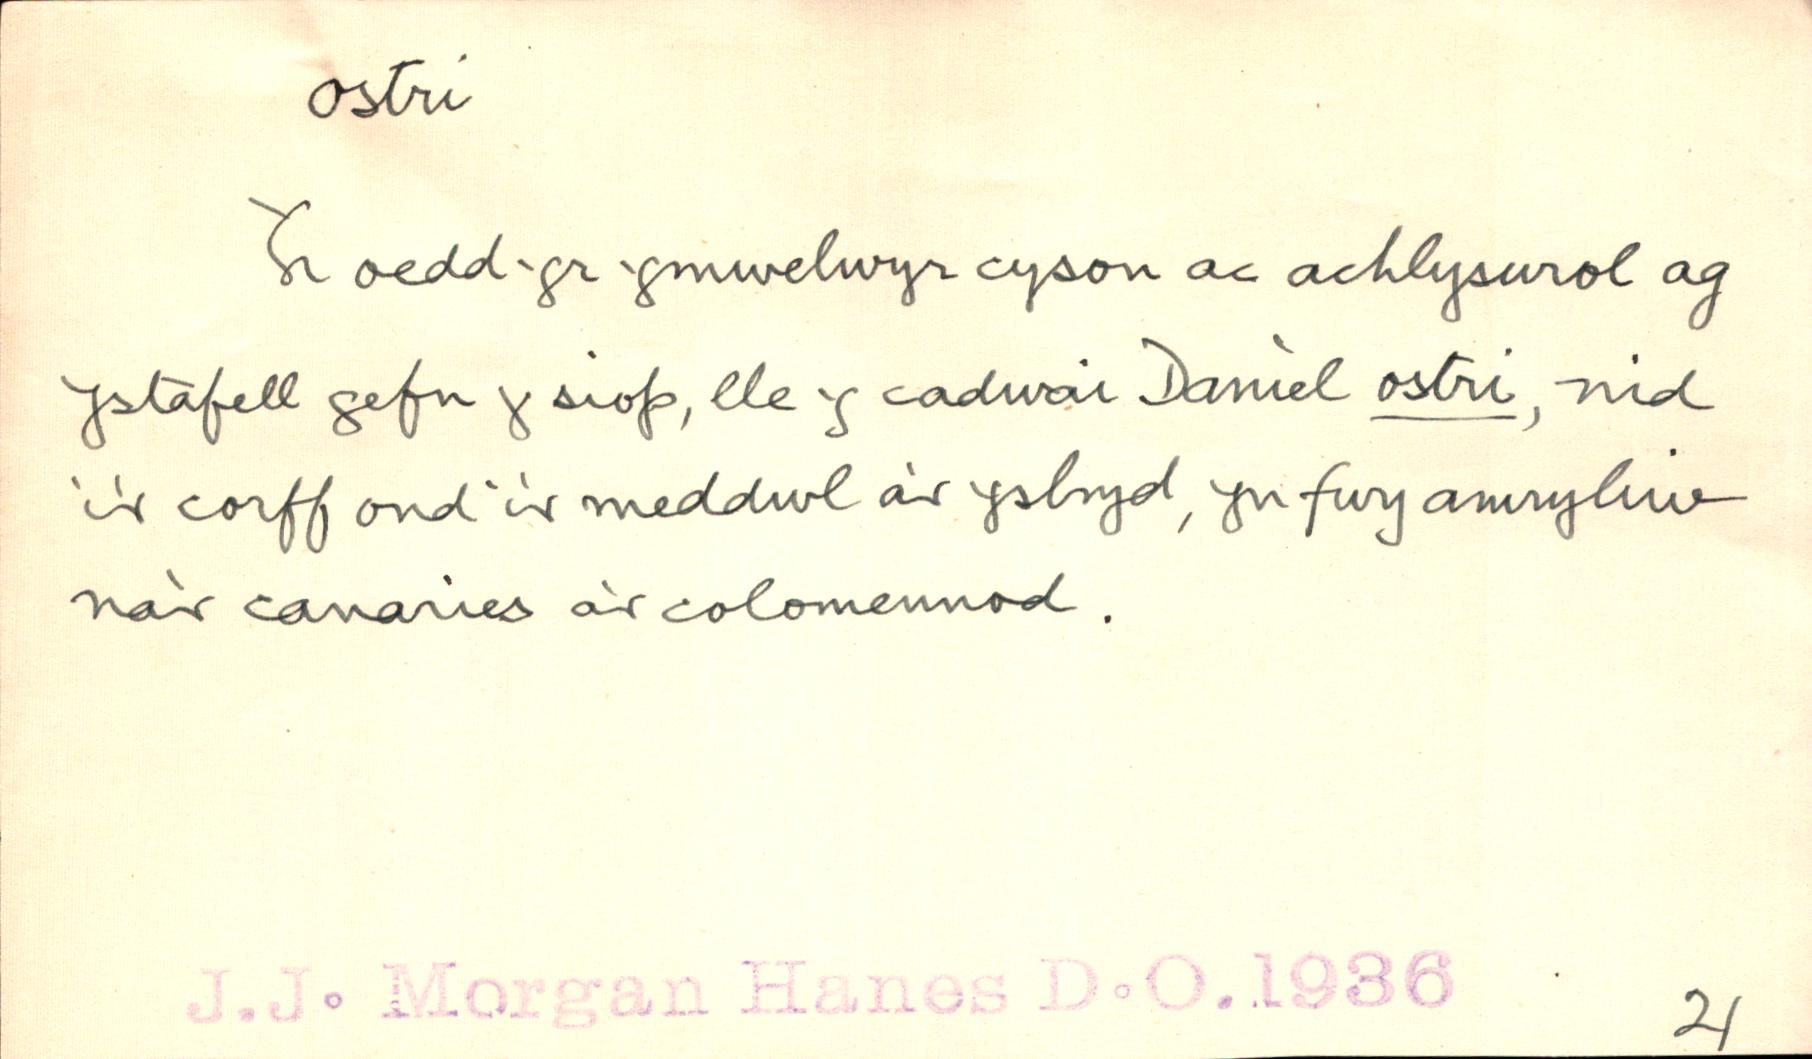 ostri
Yr oedd yr ymwelwyr cyson ac achlysurol ag
ystafell gefn y siop, lle y cadwai Daniel ostri, nid
i'r corff ond i'r meddwl a'r ysbryd, yn fwy amryliw
na'r canaries a'r colomennod.
J.J. Morgan Hanes D.O. 1936
21